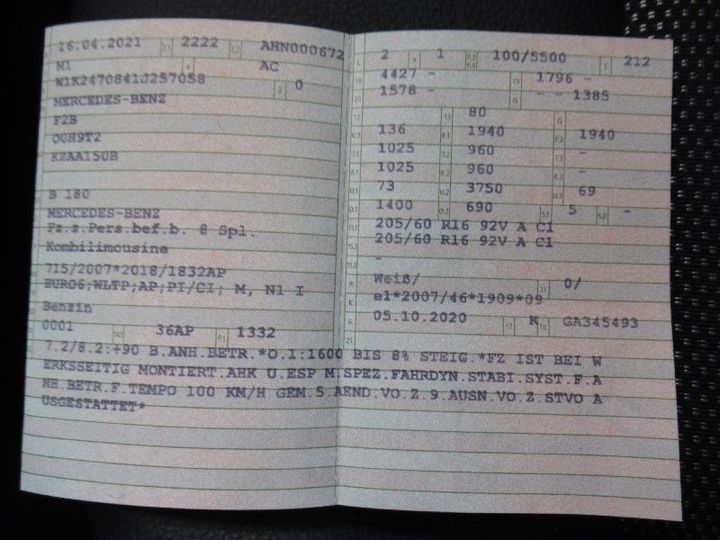 16.04.2021 2222 AHN000672
M1 AC
W1K2470841J257058 0
MERCEDES-BENZ
F2B
O0H9T2
KZAA150B
B 180
MERCEDES-BENZ
Fz.z.Pers.bef.b. 8 Spl.
Kombilimousine
715/2007*2018/1832AP
EURO6;WLTP;AP;PI/CI; M, N1 I
Benzin
0001 36AP 1332
2 1 100/5500 212
4427 - 1796 -
1578 - - - 1385
80
136 1940 1940
1025 960 -
1025 960 -
73 3750 69
1400 690 5 -
205/60 R16 92V A C1
205/60 R16 92V A C1
-
Weiß/ 0/
e1*2007/46*1909*09
05.10.2020 K GA345493
7.2/8.2:+90 B.ANH.BETR.*O.1:1600 BIS 8% STEIG.*FZ IST BEI W
ERKSSEITIG MONTIERT.AHK U.ESP M.SPEZ.FAHRDYN.STABI.SYST.F.A
NH.BETR.F.TEMPO 100 KM/H GEM.5.AEND.VO.Z.9.AUSN.VO.Z.STVO A
USGESTATTET*